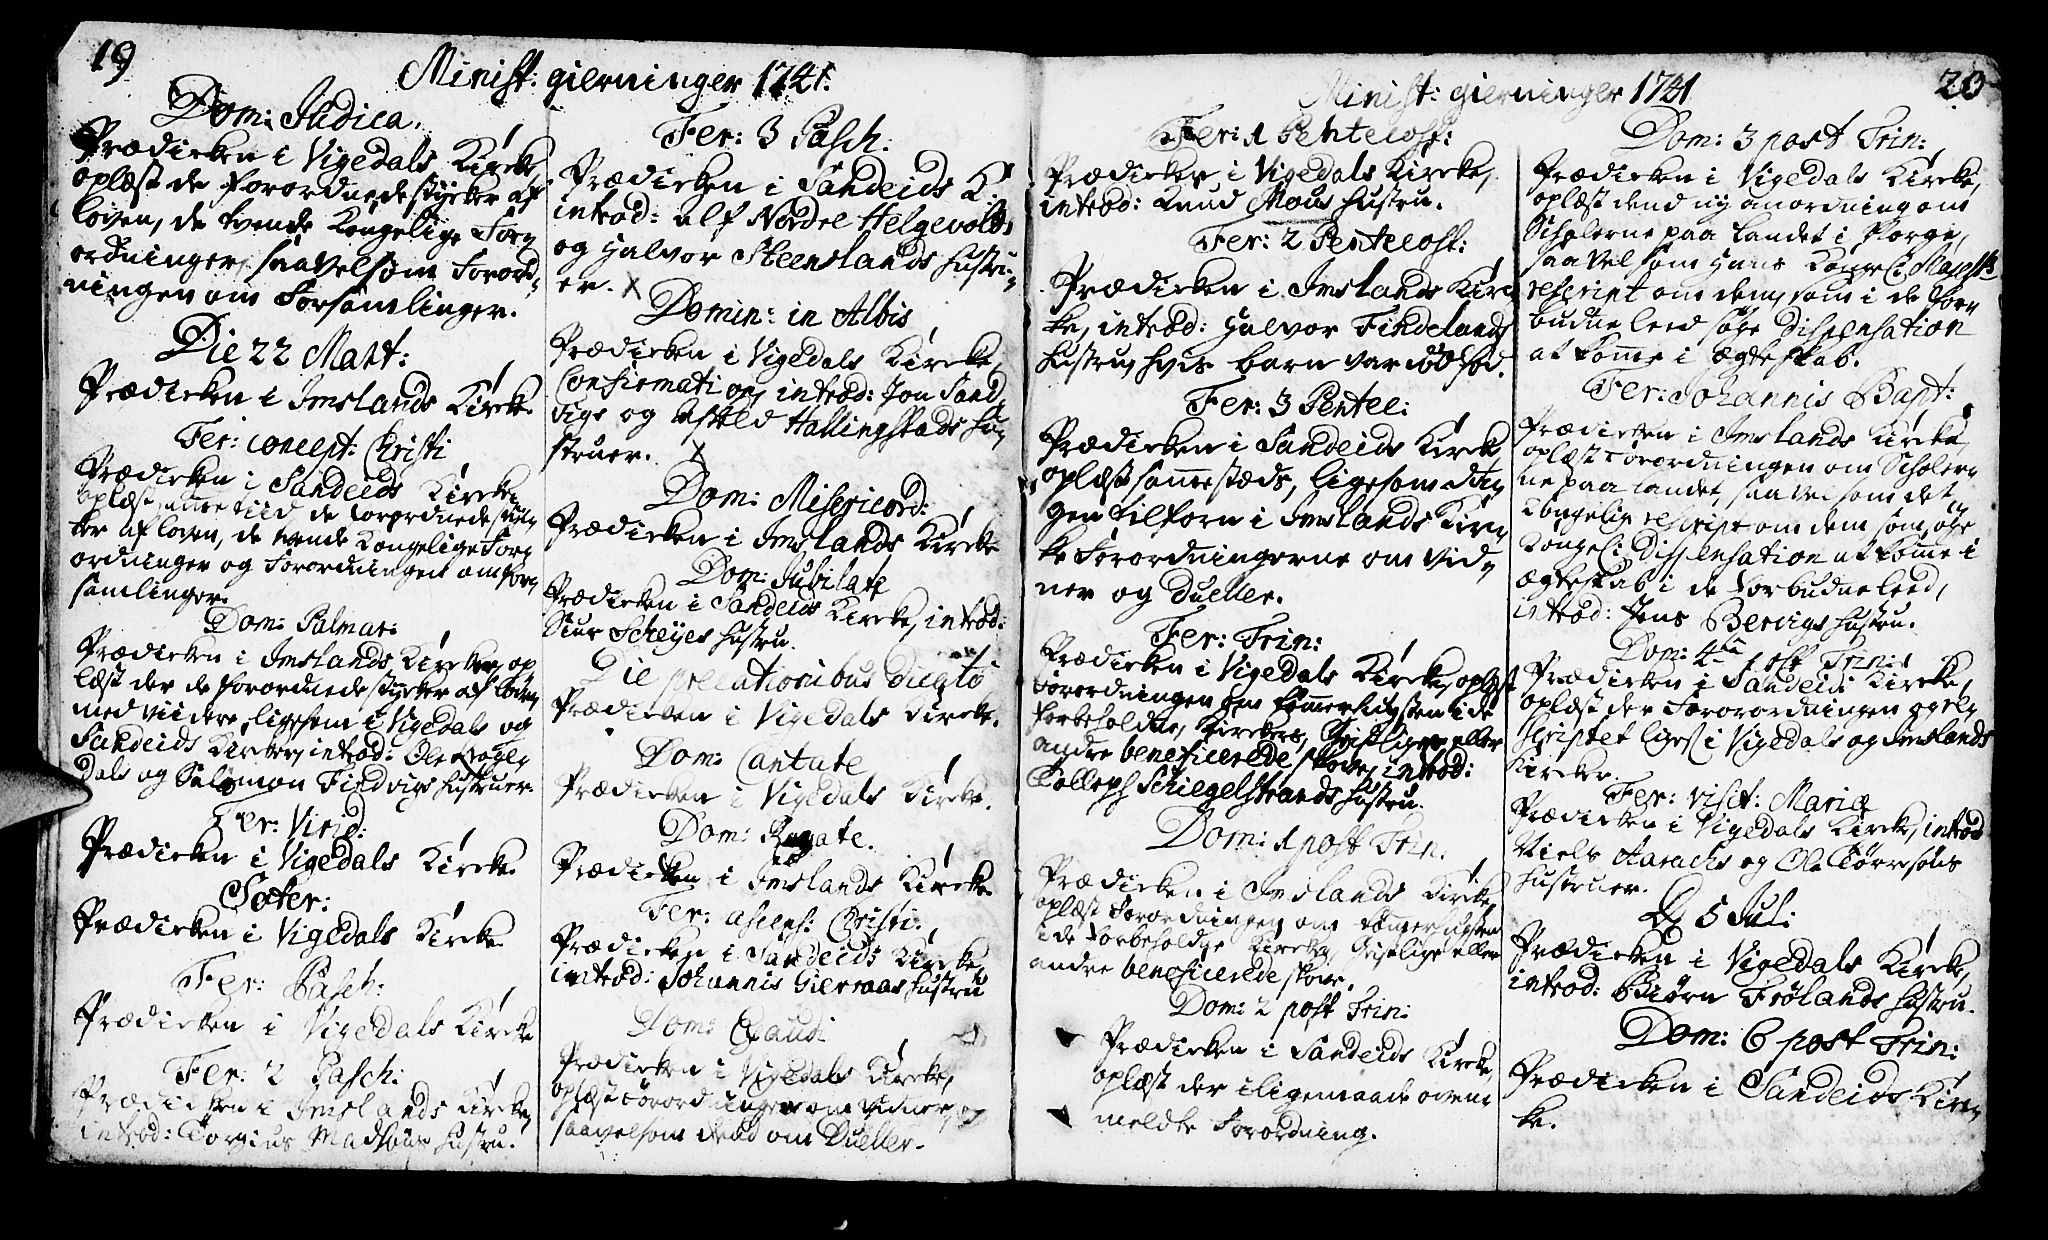 19
Minist: gierninger 1741.
Dom: Judica.
Prædicken i Vigedals Kircke,
oplæst de forordnede stycker af
loven, de tvende Kongelige For-
ordninger, saavelsom Forord-
ningen om Forsamlinger.
Die 22 Mart:
Prædicken i Imslands Kircke.
Fer: concept: Christi
Prædicken i Sandeids Kircke,
oplæst samme tiid de forordnede styc-
ker af loven, de tvende Kongelige For-
ordninger og Forordningen om For-
samlinger.
Dom: Palmar:
Prædicken i Imslands Kircke, op-
læst der de forordnede stycker af loven,
med viidere, ligesom i Vigedals og
Sandeids Kircker, introd: Ole
Dals og Salomon Findvigs Hustruer.
Fer: Virid:
Prædicken i Vigedals Kircke.
Soter:
Prædicken i Vigedals Kircke.
Fer: Pasch:
Prædicken i Vigedals Kircke
Fer: 2 Pasch:
Prædicken i Imslands Kircke,
introd: Torgius Madsøns Hustru.
Fer: 3 Pasch:
Prædicken i Sandeids K:
introd: Alf Nordre Helgevolds
og Halvor Steenslands Hustru-
er. X
Domin: in Albis
Prædicken i Vigedals Kircke,
Confirmation, introd: Jon Sand-
viigs og Hallingstads Hu-
struer. X
Dom: Misericord:
Prædicken i Imslands Kircke
Dom: Jubilate
Prædicken i Sandeids Kircke, introd:
Siur Scheyes Hustru.
Die precationibus dicato
Prædicken i Vigedals Kircke.
Dom: Cantate
Prædicken i Vigedals Kircke.
Dom: Rogate.
Prædicken i Imslands Kircke
Fer: Ascens: Christi.
Prædicken i Sandeids Kircke,
introd: Johannis Gieraas Hustru
Dom: Exaudi
Prædicken i Vigedals Kircke,
oplæst Forordningen om Vidner,
saavelsom dend om Dueller.
Minist: gierninger 1741
20
Fer: 1 Pentecost:
Prædicken i Vigedals Kircke,
introd: Knud Hustru.
Fer: 2 Pentecost:
Prædicken i Imslands Kirc-
ke, introd: Halvor Findelands
Hustru, hvis barn var dödföd.
Fer: 3 Pentec:
Prædicken i Sandeids Kirck
oplæst sammestæds, ligesom da-
gen tilforn i Imslands Kirc-
ke Forordningerne om Vid-
ner og Dueller.
Fer: Trin:
Prædicken i Vigedals Kircke, oplæst
Forordningen om Tømmerhugsten i de
forbeholdte, Kirckens, Geistlige eller
andre beneficerede skove, introd:
Tolleph Schiegelstrands Hustru.
Dom: 1 post Trin:
Prædicken i Imslands Kircke,
oplæst Forordningen om Tømmerhugsten
i de Forbeholdte Kirckes, Geistlige eller
andre beneficerede skove.
Dom: 2 post Trin:
Prædicken i Sandeids Kircke,
oplæst der iligemaade oven-
meldte Forordning.
Dom: 3 post Trin:
Prædicken i Vigedals Kircke,
oplæst dend ny anordning om
Scholerne paa Landet i Norge,
saavelsom Hans Kongel: Majsts
rescript om dem, som i de For-
budne leed søge Dispensation
at komme i Ægteskab.
Fer: Johannis Bapt:
Prædicken i Imslands Kircke,
oplæst Forordningen om Scholer-
ne paa Landet, saavelsom det
Kongelig rescript om dem som søge
Kongel: Dispensation at komme i
Ægteskab i de Forbudne leed,
introd: Jens Bervigs Hustru.
Dom: 4ta post Trin:
Prædicken i Sandeids Kircke,
oplæst der Forordningen og re-
scriptet liges i Vigedals og Imslands
Kircker.
Fer: visit: Mariæ
Prædicken i Vigedals Kircke, introd
Niels Aarachs og Ole Torresøns
Hustruer.
D 5 Jul:
Prædicken i Vigedals Kircke,
introd: Biørn Frølands Hustru.
Dom: 6 post Trin:
Prædicken i Sandeids Kirc-
ke.